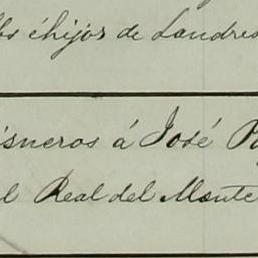 é hijos de Landres
isneros á José
Real del Monte